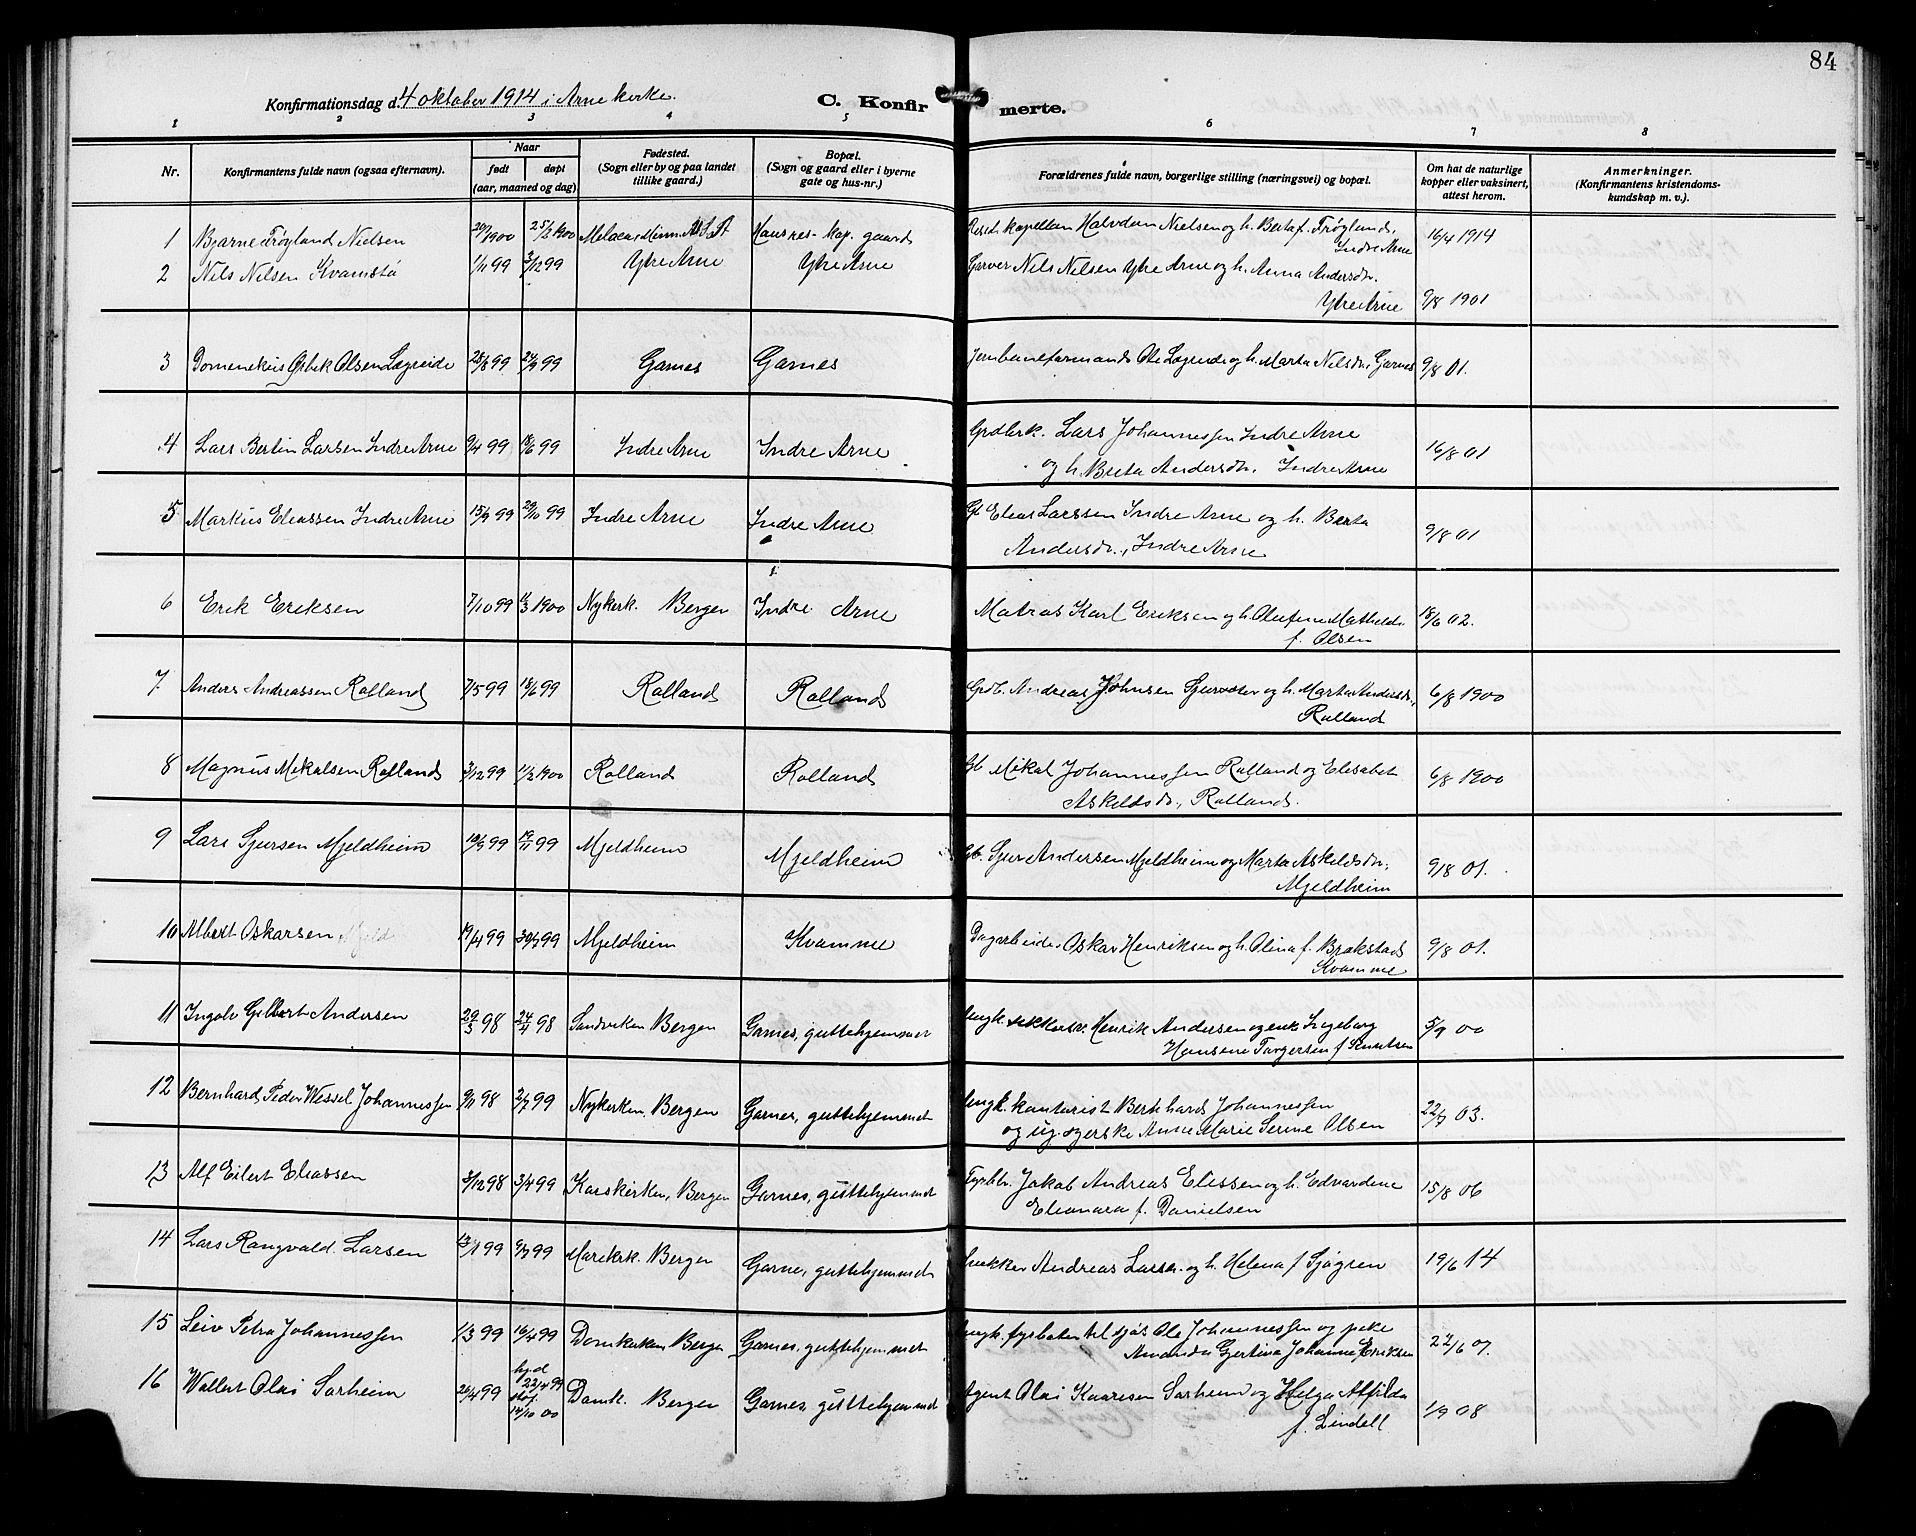 84
Konfirmationsdag d. 4 oktober 1914 i Arne kirke.
C. Konfirmerte.
1 2 3 4 5 6 7 8
Nr. Konfirmantens fulde navn (ogsaa efternavn). Naar født døpt (aar, maaned og dag) Fødested. (Sogn eller by og paa landet tillike gaard.) Bopæl. (Sogn og gaard eller i byerne gate og hus-nr.) Forældrenes fulde navn, borgerlige stilling (næringsvei) og bopæl. Om hat de naturlige kopper eller vaksinert, attest herom. Anmerkninger. (Konfirmantens kristendomskundskap m. v.).
1 Bjarne Frøyland Nielsen 1900 25/2 1900 Haus res. kap. gaard Resid. kapellan Halvdan Nielsen og h. Berta f. Frøyland, Indre Arne 16/4 1914
2 Nils Nilsen Kvamstø 1/11 99 3/12 99 Ytre Arne Ytre Arne Garver Nils Nilsen Ytre Arne og h. Anna Andersdtr. Ytre Arne 9/8 1901
3 Domenikus Olsen Lægreide 28/8 99 24/9 99 Garnes Garnes Jernbaneformand Ole Lægreide og h. Marta Nilsdtr, Garnes 9/8 01.
4 Lars Bertin Larsen Indre Arne 9/4 99 18/6 99 Indre Arne Indre Arne Grdbrk. Lars Johannessen Indre Arne
og h. Brita Andersdtr. Indre Arne 16/8 01
5 Markus Eliassen Indre Arne 15/9 99 29/10 99 Indre Arne Indre Arne Elias Larssen Indre Arne og h. Berta
Andersdtr., Indre Arne 9/8 01
6 Erik Eriksen 7/10 99 11/3 1900 Nykerk. Bergen Indre Arne Matros Karl Eriksen og h. Olufine Mathilde
f. Olsen 18/6 02.
7 Anders Andreassen Rolland 7/5 99 18/6 99 Rolland Rolland Grdb. Andreas Johnsen og h. Marta Andersdtr.,
Rolland 6/8 1900
8 Magnus Mikalsen Rolland 3/12 99 11/2 1900 Rolland Rolland Gb Mikal Johannessen Rolland og Elisabet
Askeldsdtr., Rolland. 6/8 1900
9 Lars Sjursen Mjeldheim 10/9 99 19/11 99 Mjeldheim Mjeldheim Gb. Sjur Andersen Mjeldheim og Marta Askeldsdtr,
Mjeldheim 9/8 01.
10 Albert Oskarsen Mjeld 19/4 99 30/7 99 Mjeldheim Kvamme Dagarbeider Oskar Henriksen og h. Olina f. Brakstad
Kvamme 9/8 01.
11 Ingolv Gilbert Andersen 29/3 98 24/4 98 Sandviken Bergen Garnes, guttehjemmet Ungk. Henrik Andersen og enk. Ingeborg
Hansine Torgersen f Knutsen 5/9 00
12 Bernhard Peder Wessel Johannessen 9/11 98 2/7 99 Nykerken, Bergen Garnes, guttehjemmet Ungk. kontorist Bernhard Johannessen
og ug. syerske Anne Marie Serine Olsen 22/9 03.
13 Alf Eilert Eliassen 3/12 98 3/4 99 Korskirken, Bergen Garnes, guttehjemmet Fyrbb. Jakob Andreas Eliassen og h. Edvardine
Eleonora f. Danielsen 15/8 06
14 Lars Rangvald Larsen 13/1 99 9/7 99 Mariekrk. Bergen Garne, guttehjemmet Andreas Larsen og h. Helena f Sjøgren 19/6 14
15 Leiv Petra Johannessen 1/3 99 16/4 99 Domkirken Bergen Garnes, guttehjemmet Ungk. fyrbøter til sjøs Ole Johannessen og pike
Amanda Gjertina Johanne Eriksen 22/6 07.
16 Wallert Olai Sørheim 26/4 99 hjd 22/4 99 14/10 00 Domk. Bergen Garnes, guttehjemmet Agent Olai Kaaresen Sørheim og Helga Alfilda
f. Lindell 1/9 08